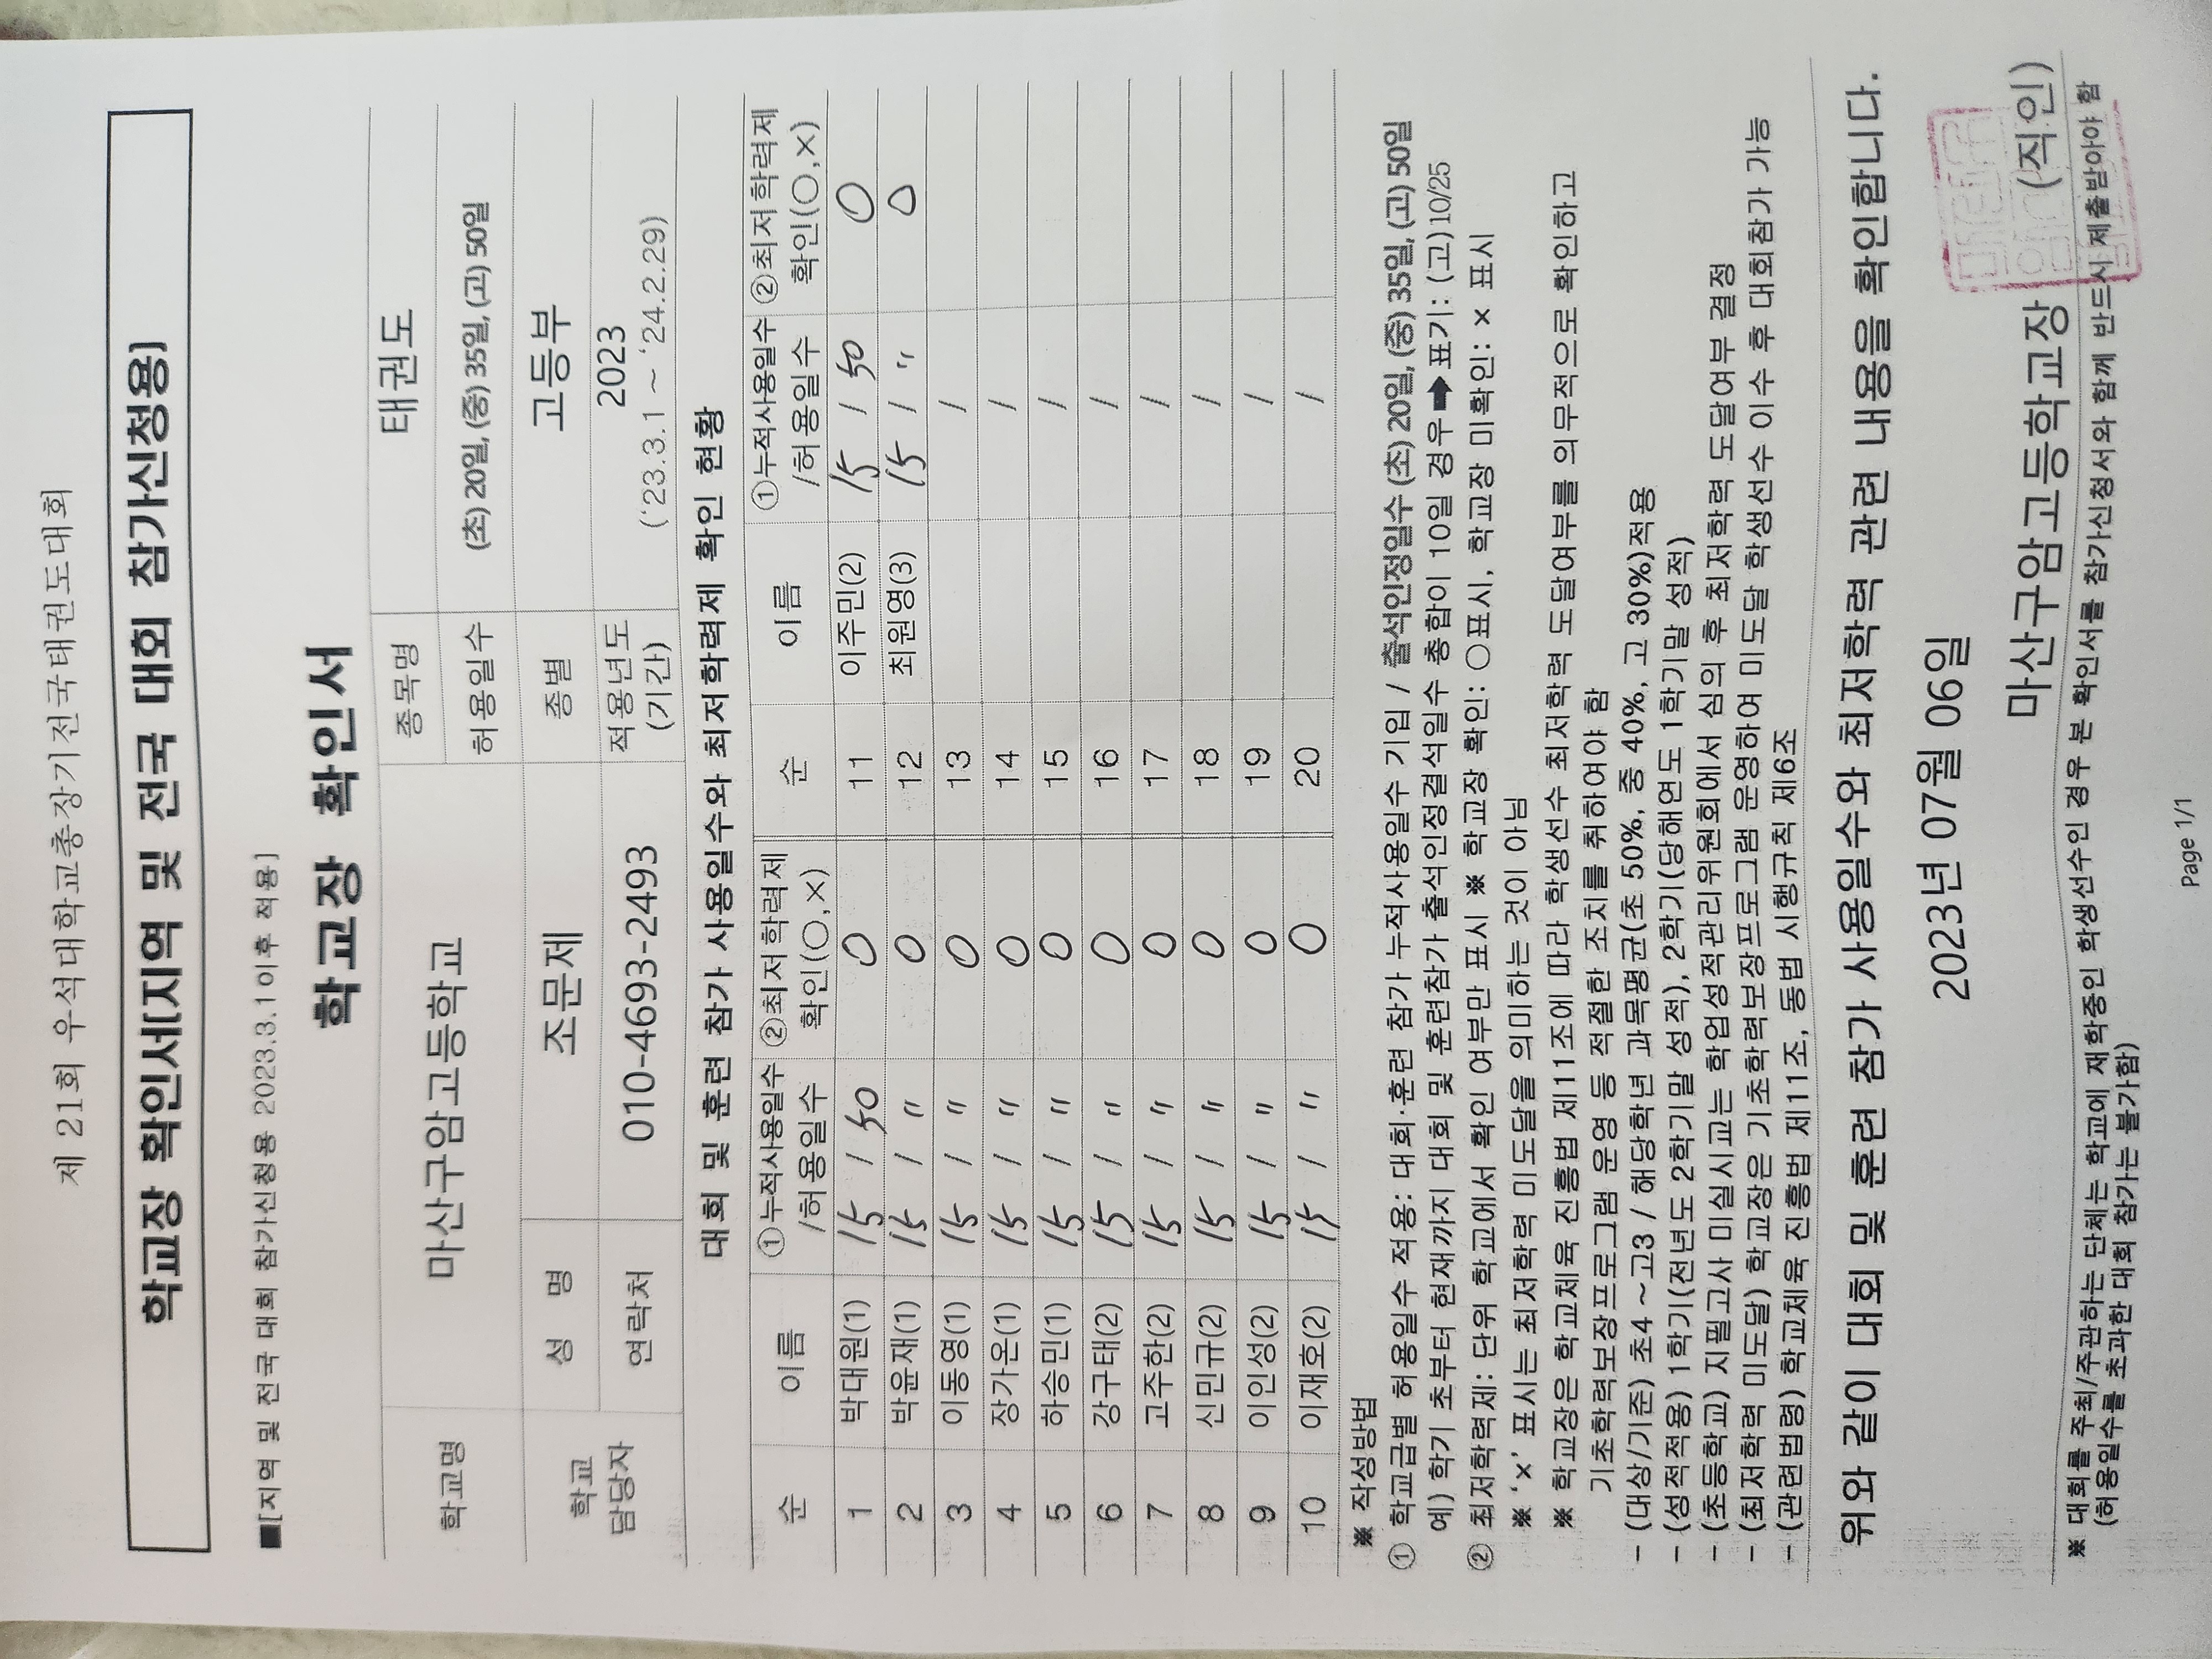 제 21회 우석대학교총장기전국태권도대회
학교장 확인서[지역 및 전국 대회 참가신청용]
■[지역 및 전국 대회 참가신청용 2023.3.1이후 적용]
학교장 확인서
학교명 마산구암고등학교 종목명 태권도
허용일수 (초) 20일, (중) 35일, (고) 50일
학교 담당자 성 명 조문제 종별 고등부
연락처 010-4693-2493 적용년도 (기간) 2023 ('23.3.1 ~ '24.2.29)
대회 및 훈련 참가 사용일수와 최저학력제 확인 현황
순 이름 ①누적사용일수 /허용일수 ②최저학력제 확인(○,×) 순 이름 ①누적사용일수 /허용일수 ②최저학력제 확인(○,×)
1 박대원(1) 15 / 50 ○ 11 이주민(2) 15 / 50 ○
2 박윤재(1) 15 / 〃 ○ 12 최원영(3) 15 / 〃 ○
3 이동영(1) 15 / 〃 ○ 13 /
4 장가온(1) 15 / 〃 ○ 14 /
5 하승민(1) 15 / 〃 ○ 15 /
6 강구태(2) 15 / 〃 ○ 16 /
7 고주한(2) 15 / 〃 ○ 17 /
8 신민규(2) 15 / 〃 ○ 18 /
9 이인성(2) 15 / 〃 ○ 19 /
10 이재호(2) 15 / 〃 ○ 20 /
※ 작성방법
① 학교급별 허용일수 적용: 대회·훈련 참가 누적사용일수 기입 / 출석인정일수 (초) 20일, (중) 35일, (고) 50일
예) 학기 초부터 현재까지 대회 및 훈련참가 출석인정결석일수 총합이 10일 경우 ➡ 표기: (고) 10/25
② 최저학력제: 단위 학교에서 확인 여부만 표시 ※ 학교장 확인: ○표시, 학교장 미확인: × 표시
※ '×' 표시는 최저학력 미도달을 의미하는 것이 아님
※ 학교장은 학교체육 진흥법 제11조에 따라 학생선수 최저학력 도달여부를 의무적으로 확인하고
기초학력보장프로그램 운영 등 적절한 조치를 취하여야 함
- (대상/기준) 초4 ~ 고3 / 해당학년 과목평균(초 50%, 중 40%, 고 30%)적용
- (성적적용) 1학기(전년도 2학기말 성적), 2학기(당해연도 1학기말 성적)
- (초등학교) 지필고사 미실시교는 학업성적관리위원회에서 심의 후 최저학력 도달여부 결정
- (최저학력 미도달) 학교장은 기초학력보장프로그램 운영하여 미도달 학생선수 이수 후 대회참가 가능
- (관련법령) 학교체육 진흥법 제11조, 동법 시행규칙 제6조
위와 같이 대회 및 훈련 참가 사용일수와 최저학력 관련 내용을 확인합니다.
2023년 07월 06일
마산구암고등학교장 (직인)
※ 대회를 주최/주관하는 단체는 학교에 재학중인 학생선수인 경우 본 확인서를 참가신청서와 함께 반드시 제출받아야 함
(허용일수를 초과한 대회 참가는 불가함)
Page 1/1